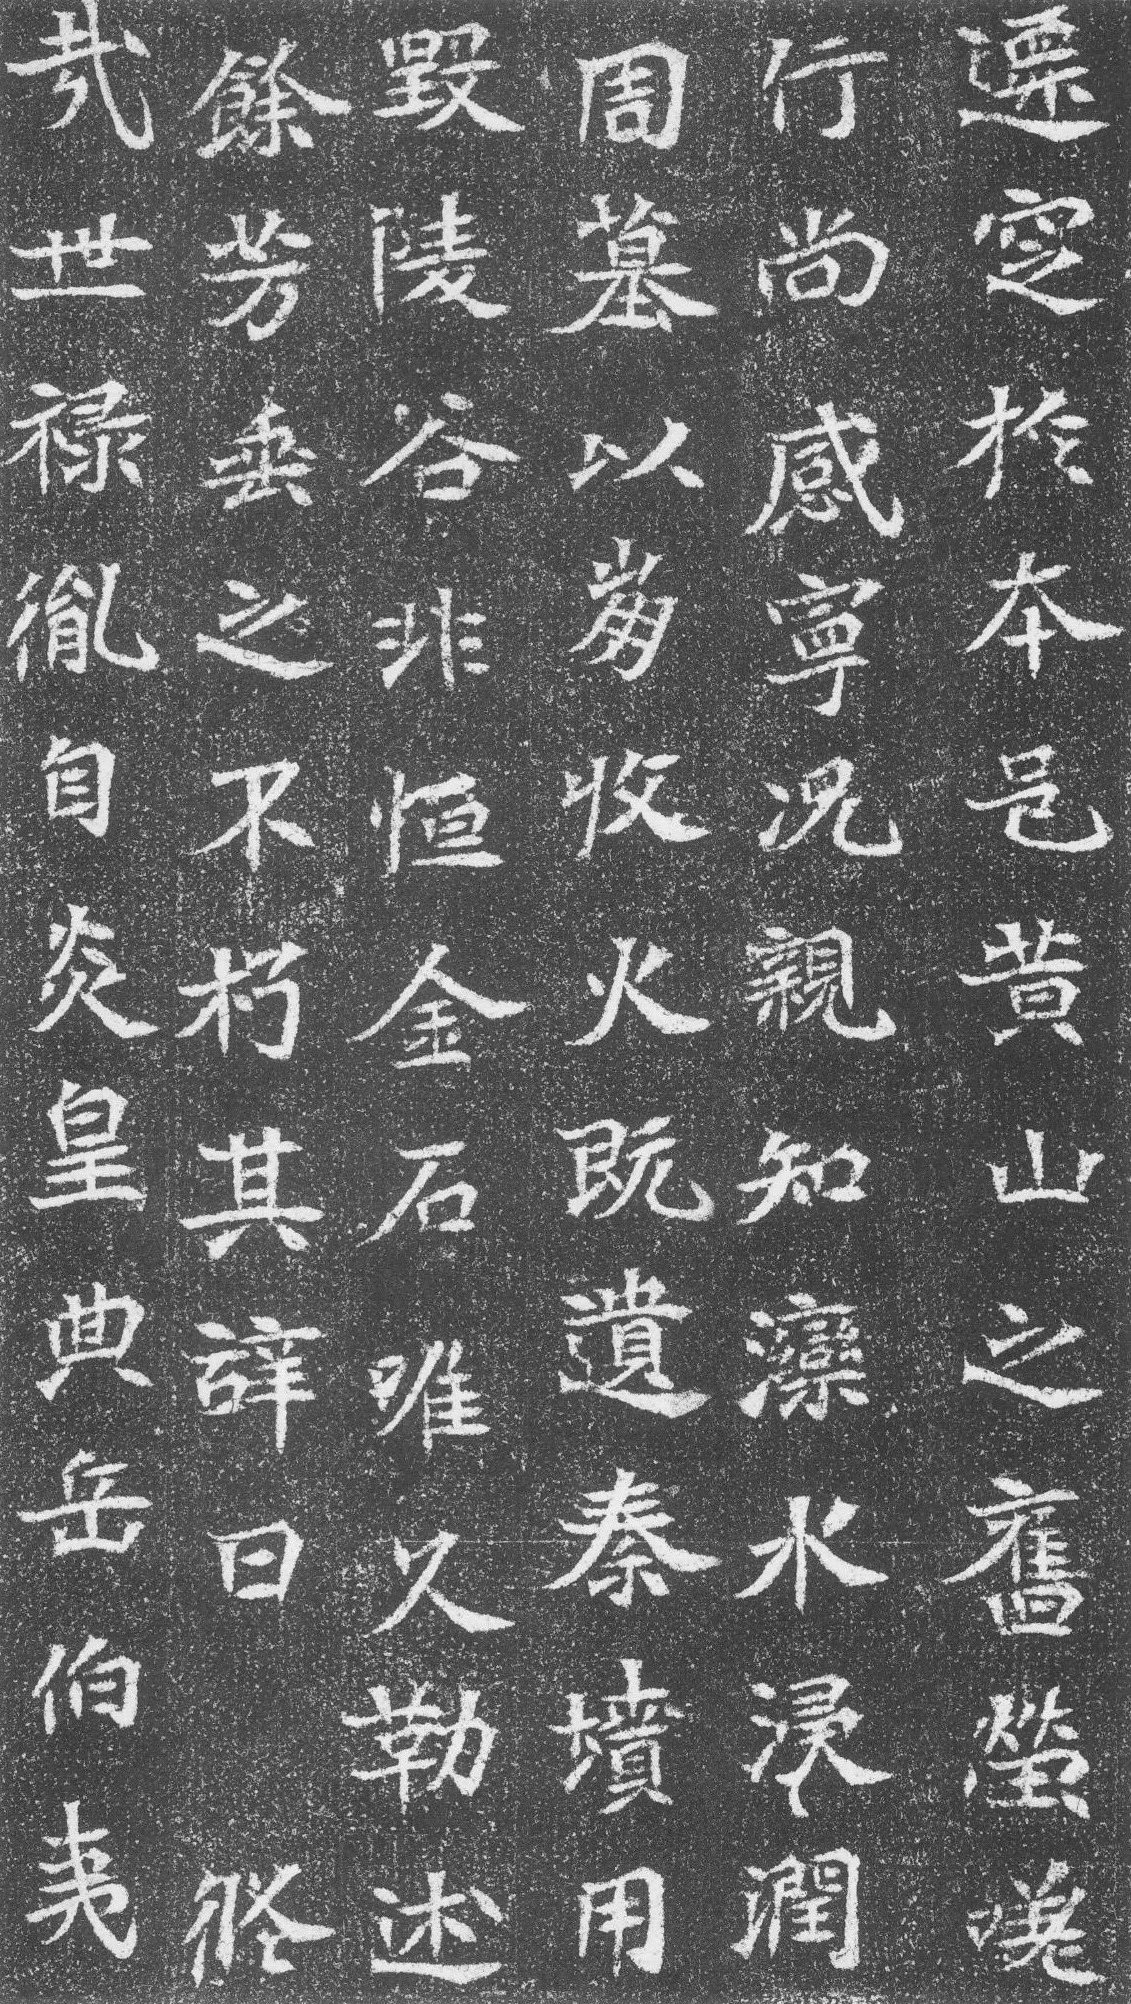 遷穸於本邑黃山之舊塋嗟
行尚感寧況親知灤水浸潤
周墓以崩收火既遺秦墳用
毀陵谷非恒金石唯久勒述
餘芳垂之不朽其辞曰 攸
哉世祿胤自炎皇典岳伯夷